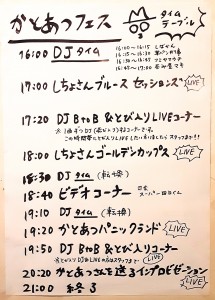 かとあつフェス
タイム
テーブル
16:00 DJタイム
16:00〜16:15 しばかん
16:15〜16:30
16:30〜16:45 フミヤマウチ
16:45〜17:00
17:00 しちょさんブルース セッションズ LIVE
17:20 DJ BtoB &とび入りLIVEコーナー
18:00 しちょさんゴールデンカップス LIVE
18:30 DJタイム (転換)
18:40 ビデオコーナー
19:10 DJタイム (転換)
19:20 かとあつパニックランド LIVE
19:50 DJ BtoB &とび入りコーナー LIVE
20:20 かとあつさんを送るインプロビゼーション LIVE
21:00 終了